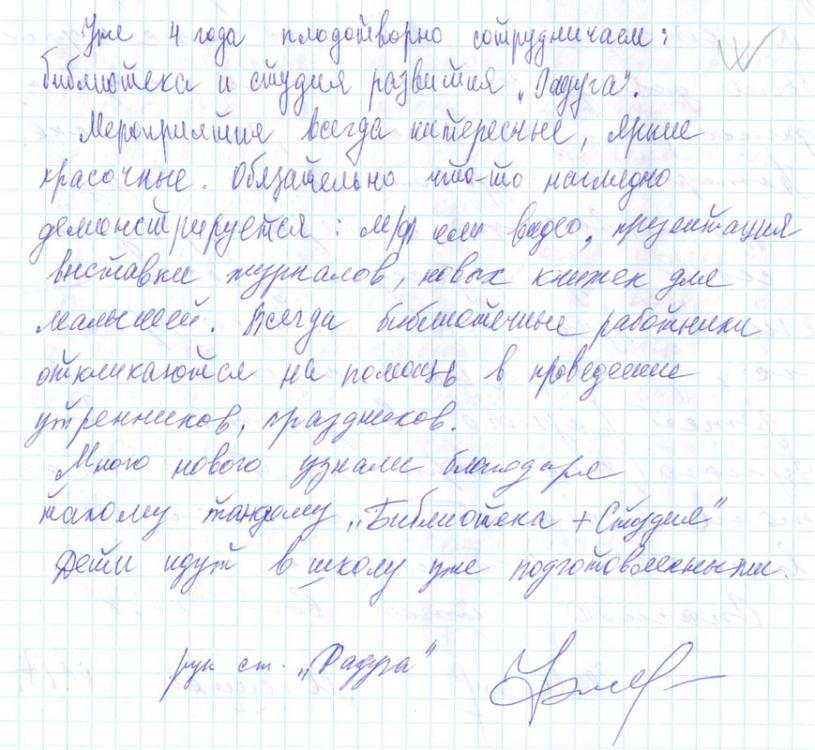 Уже 4 года плодотворно сотрудничаем:
библиотека и студия развития „Радуга".
Мероприятие всегда интересные, яркие
красочные. Обязательно что-то наглядно
демонстрируется: м/ф или видео, презентация
выставки журналов, новых книжек для
малышей. Всегда библиотечные работники
откликаются на помощь в проведение
утренников, праздников.
Много нового узнали благодаря
такому тандему „Библиотека + Студия"
Дети идут в школу уже подготовленными.
рук ст. „Радуга"